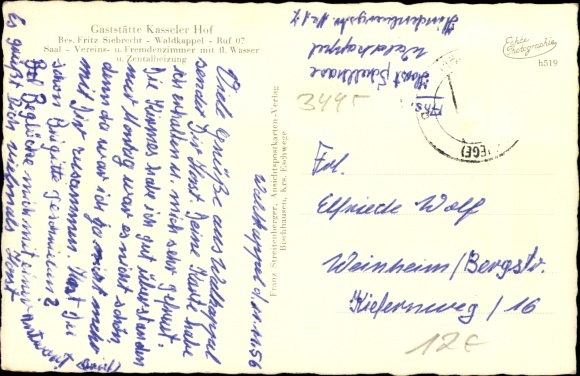 Gaststätte Kasseler Hof
Bes. Fritz Siebrecht - Waldkappel - Ruf 07
Saal - Vereins- u. Fremdenzimmer mit fl. Wasser
u. Zentralheizung
Waldkappel d. 11.56
Viele Grüße aus Waldkappel
sendet Dir Horst. Deine Karte habe
ich erhalten u. mich sehr gefreut.
Die Kirmes habe ich gut überstanden
nur Montag war es nicht schön,
denn da war ich ja nicht mehr
mit Dir zusammen. Hast Du
schon Brigitte geschrieben?
Bitte mich mit einer Antwort
Es grüßt Dich Horst
Franz Streitenberger, Ansichtspostkarten-Verlag
Bischhausen, Krs. Eschwege
Abs.
Horst
Waldkappel
Hindenburgstr.
(EGE)
Echte
Photographie
h519
3445
Frl.
Elfriede Wolf
Weinheim/Bergstr.
Kiefernweg/16
12€